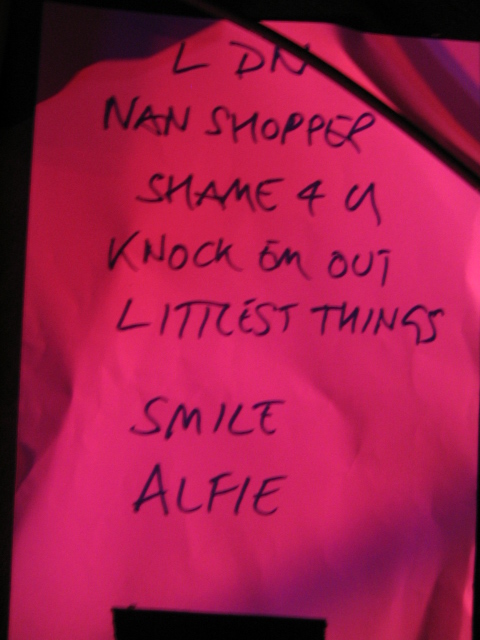 LDN
NAN SHOPPER
SHAME 4 U
KNOCK EM OUT
LITTLEST THINGS
SMILE
ALFIE